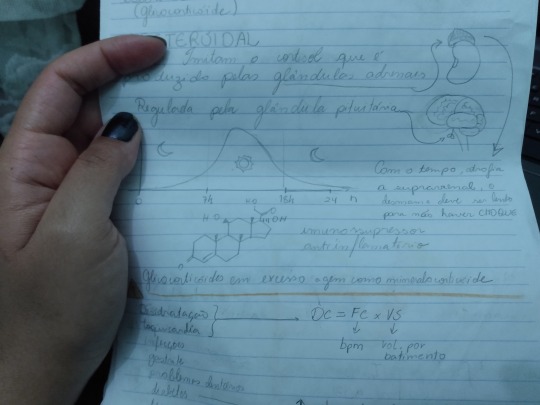 (glicocorticoide)
TEROIDAL
Imitam o cortisol que é
produzido pelas glândulas adrenais
Regulada pela glândula pituitária
Com o tempo, atrofia
a suprarrenal, o
desmame deve ser lento
para não haver CHOQUE
0 16h 24 h
HO OH
imunossupressor
antiinflamatório
Glicocorticoide em excesso agem como mineralocorticoide
DC = FC x VS
Desidratação
taquicardia
bpm vol. por
batimento
infecções
diabetes